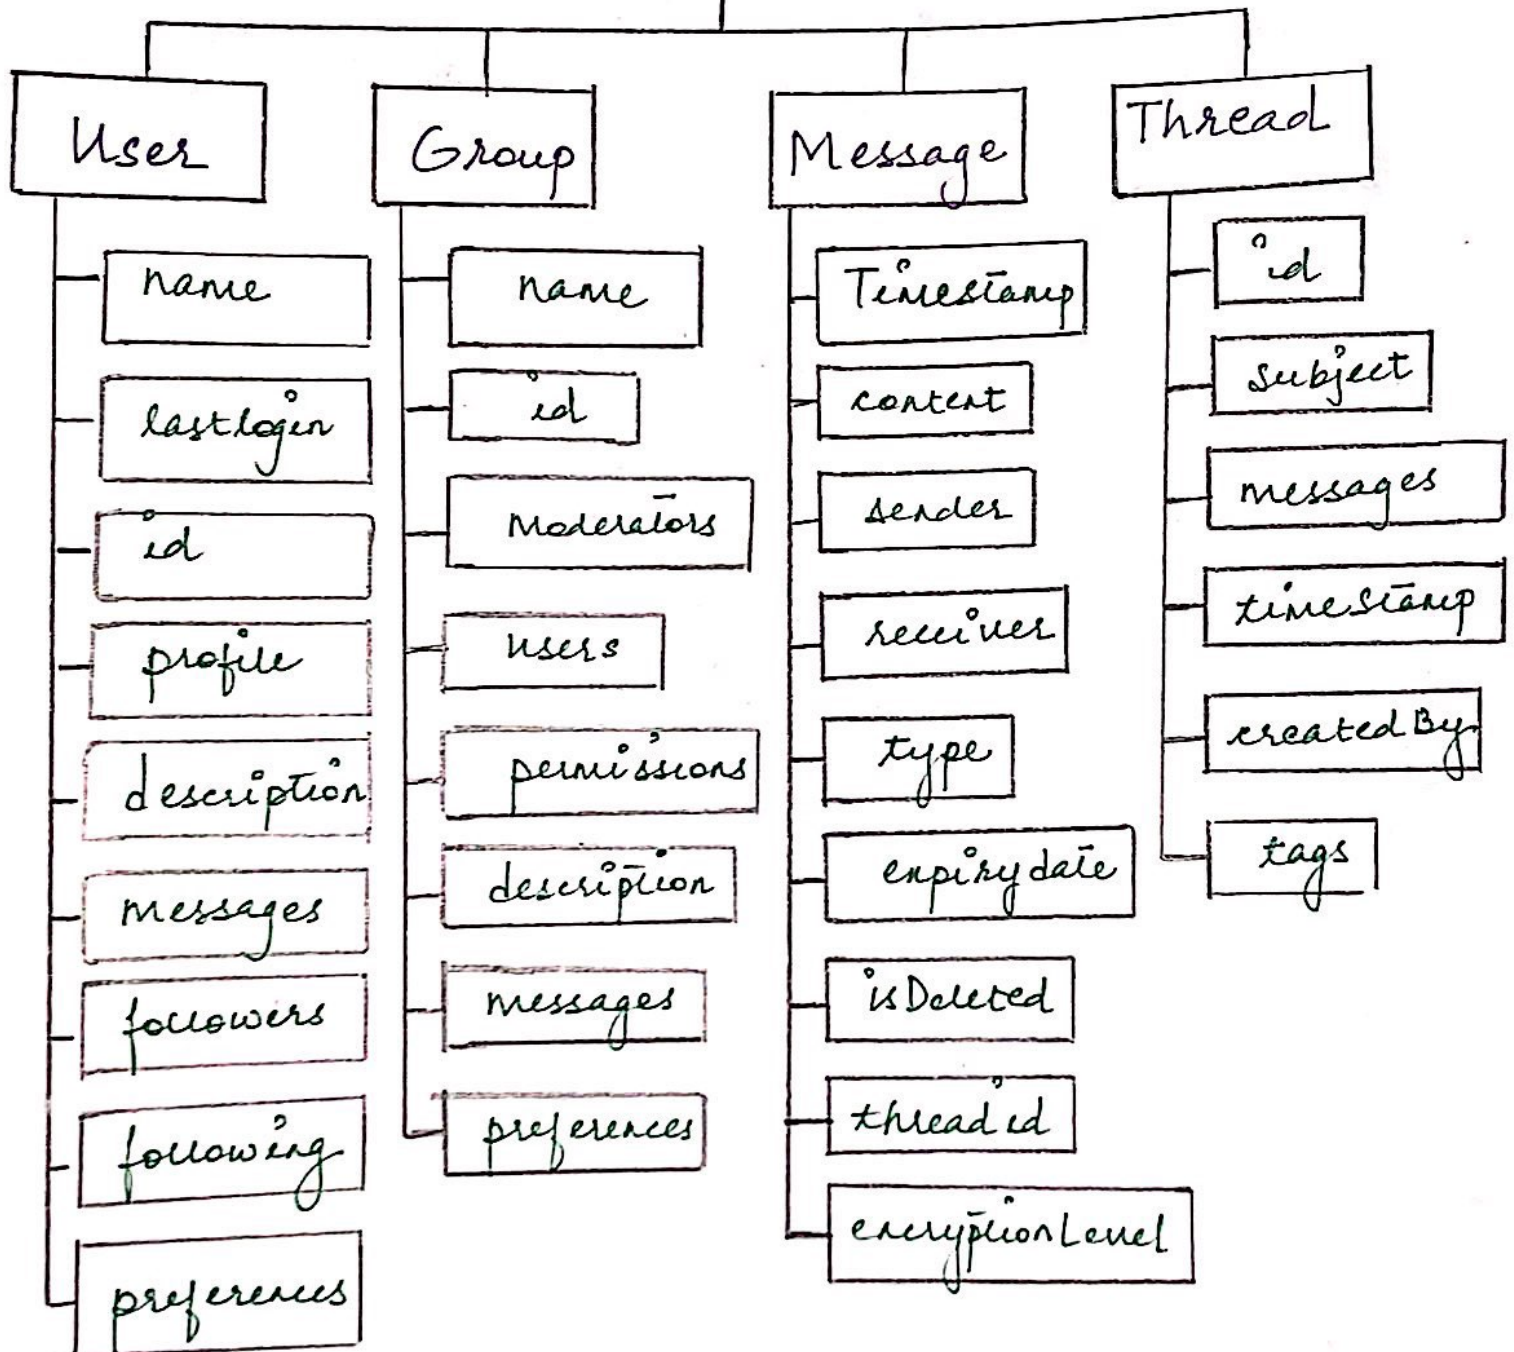 User
Group
Message
Thread
name
lastlogin
id
profile
description
messages
followers
following
preferences
name
id
Moderators
users
permissions
description
messages
preferences
Timestamp
content
sender
receiver
type
expirydate
isDeleted
threadid
encryptionLevel
id
subject
messages
timeStamp
createdBy
tags